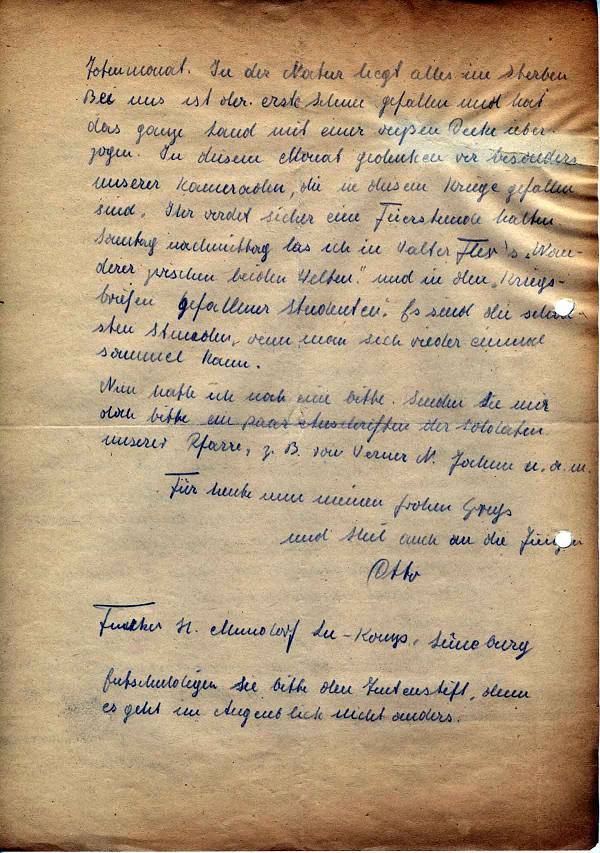 Totenmonat. In der Natur liegt alles im Sterben
Bei uns ist der erste Schnee gefallen und hat
das ganze Land mit einer weißen Decke über-
zogen. In diesem Monat gedenken wir besonders
unserer Kameraden, die in diesem Kriege gefallen
sind. Ihr werdet sicher eine Feierstunde halten.
Sonntag nachmittag las ich in Walter Flex's „Wan-
derer zwischen beiden Welten" und in den „Kriegs-
briefen gefallener Studenten". Es sind die schön-
sten Stunden, wenn man sich wieder einmal
sammel kann.
Nun hätte ich noch eine bitte. Senden Sie mir
doch bitte ein paar Anschriften der Soldaten
unserer Pfarre, z. B. von Werner N. Jochem u. a. m.
Für heute nun meinen frohen Gruß
und Heil auch an die Jungen
Otto
Funker H. Mundorf Ln-Komp. Lüneburg
Entschuldigen Sie bitte den Tintenstift, denn
es geht im Augenblick nicht anders.